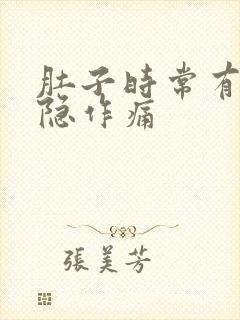 肚子时常有
隐作痛
張美芳